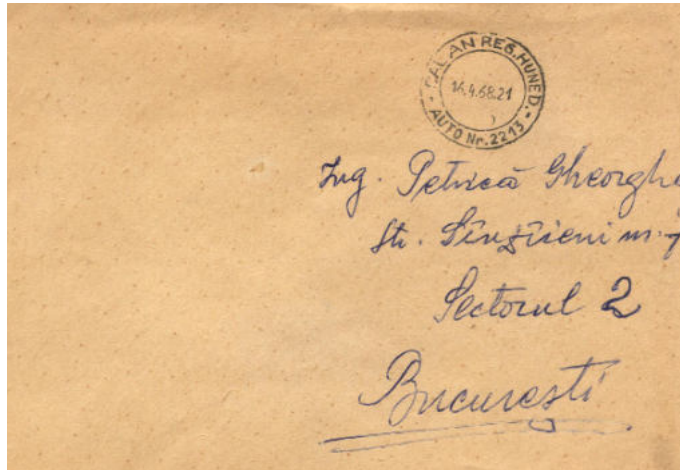 CALAN REG. HUNED.
16.4.68.21
- AUTO Nr. 2213 -
Ing. Petrică Gheorghe
Str. Sînzieni nr. 7
Sectorul 2
București